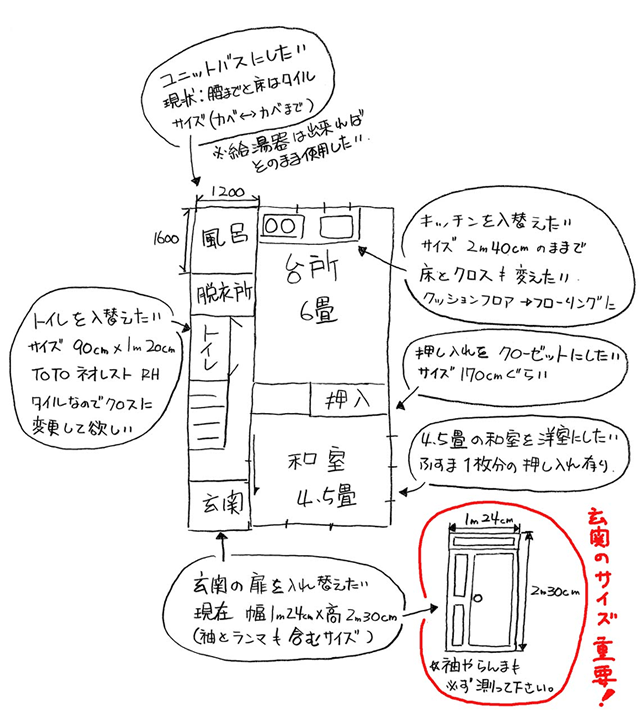 ユニットバスにしたい
現状：腰までと床はタイル
サイズ(カベ↔カベまで)
※給湯器は出来れば
そのまま使用したい.
1200
1600
風呂
脱衣所
トイレ
台所
6畳
押入
和室
4.5畳
玄関
キッチンを入替えたい
サイズ 2m40cmのままで
床とクロスも変えたい.
クッションフロア→フローリングに
トイレを入替えたい
サイズ 90cm×1m20cm
TOTO ネオレスト RH
タイルなのでクロスに
変更して欲しい
押し入れを クローゼットにしたい
サイズ 170cmぐらい
4.5畳の和室を洋室にしたい
ふすま1枚分の押し入れ有り.
玄関の扉を入れ替えたい
現在 幅1m24cm×高2m30cm
(袖とランマも含むサイズ)
1m24cm
2m30cm
※袖やらんまも
必ず測って下さい。
玄関のサイズ重要！